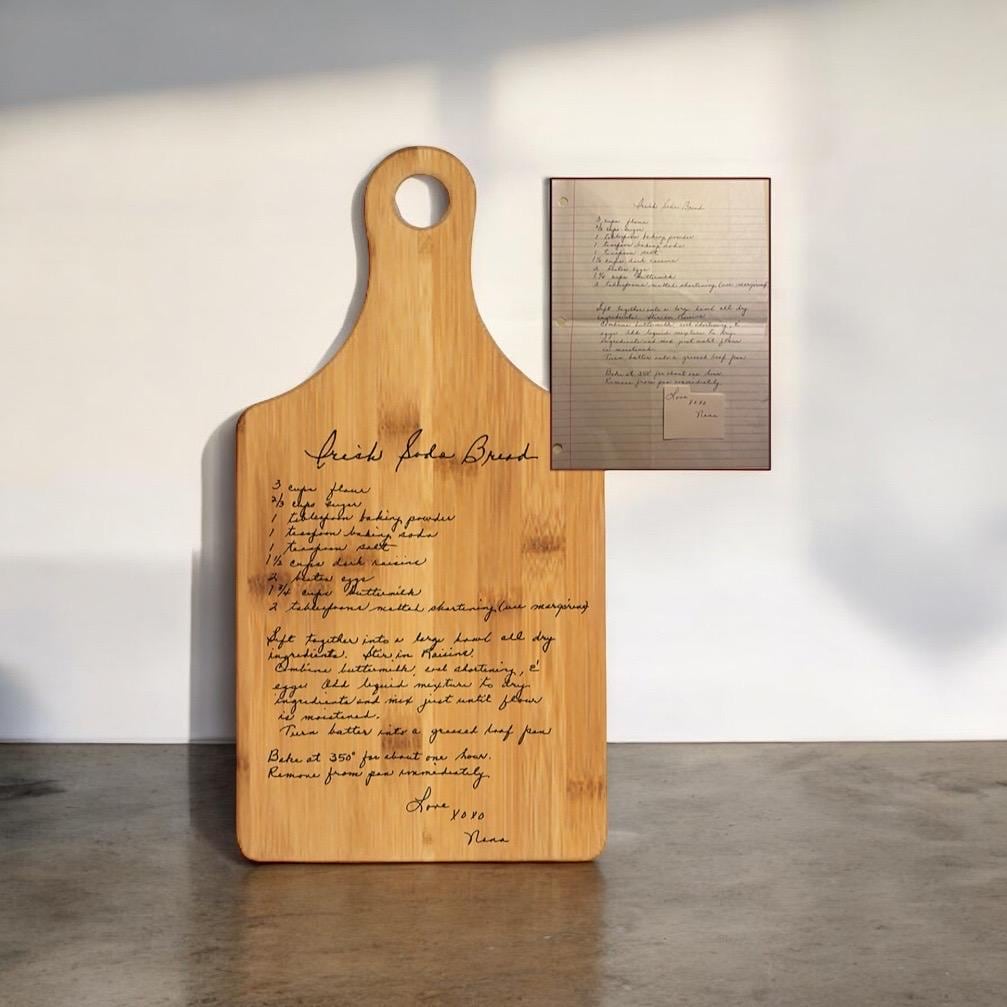 Irish Soda Bread
3 cups flour
2/3 cups sugar
1 tablespoon baking powder
1 teaspoon baking soda
1 teaspoon salt
1 1/2 cups dark raisins
2 beaten eggs
1 3/4 cups Buttermilk
2 tablespoons melted shortening (use margarine)
Sift together into a large bowl all dry
ingredients. Stir in Raisins.
Combine buttermilk, cool shortening, &
eggs Add liquid mixture to dry
ingredients and mix just until flour
is moistened.
Turn batter into a greased loaf pan
Bake at 350° for about one hour.
Remove from pan immediately.
Love
XOXO
Nana
Irish Soda Bread
3 cups flour
2/3 cups sugar
1 tablespoon baking powder
1 teaspoon baking soda
1 teaspoon salt
1 1/2 cups dark raisins
2 beaten eggs
1 3/4 cups Buttermilk
2 tablespoons melted shortening (use margarine)
Sift together into a large bowl all dry
ingredients. Stir in Raisins
Combine buttermilk, cool shortening, &
eggs Add liquid mixture to dry
ingredients and mix just until flour
is moistened.
Turn batter into a greased loaf pan
Bake at 350° for about one hour
Remove from pan immediately.
Love
XOXO
Nana